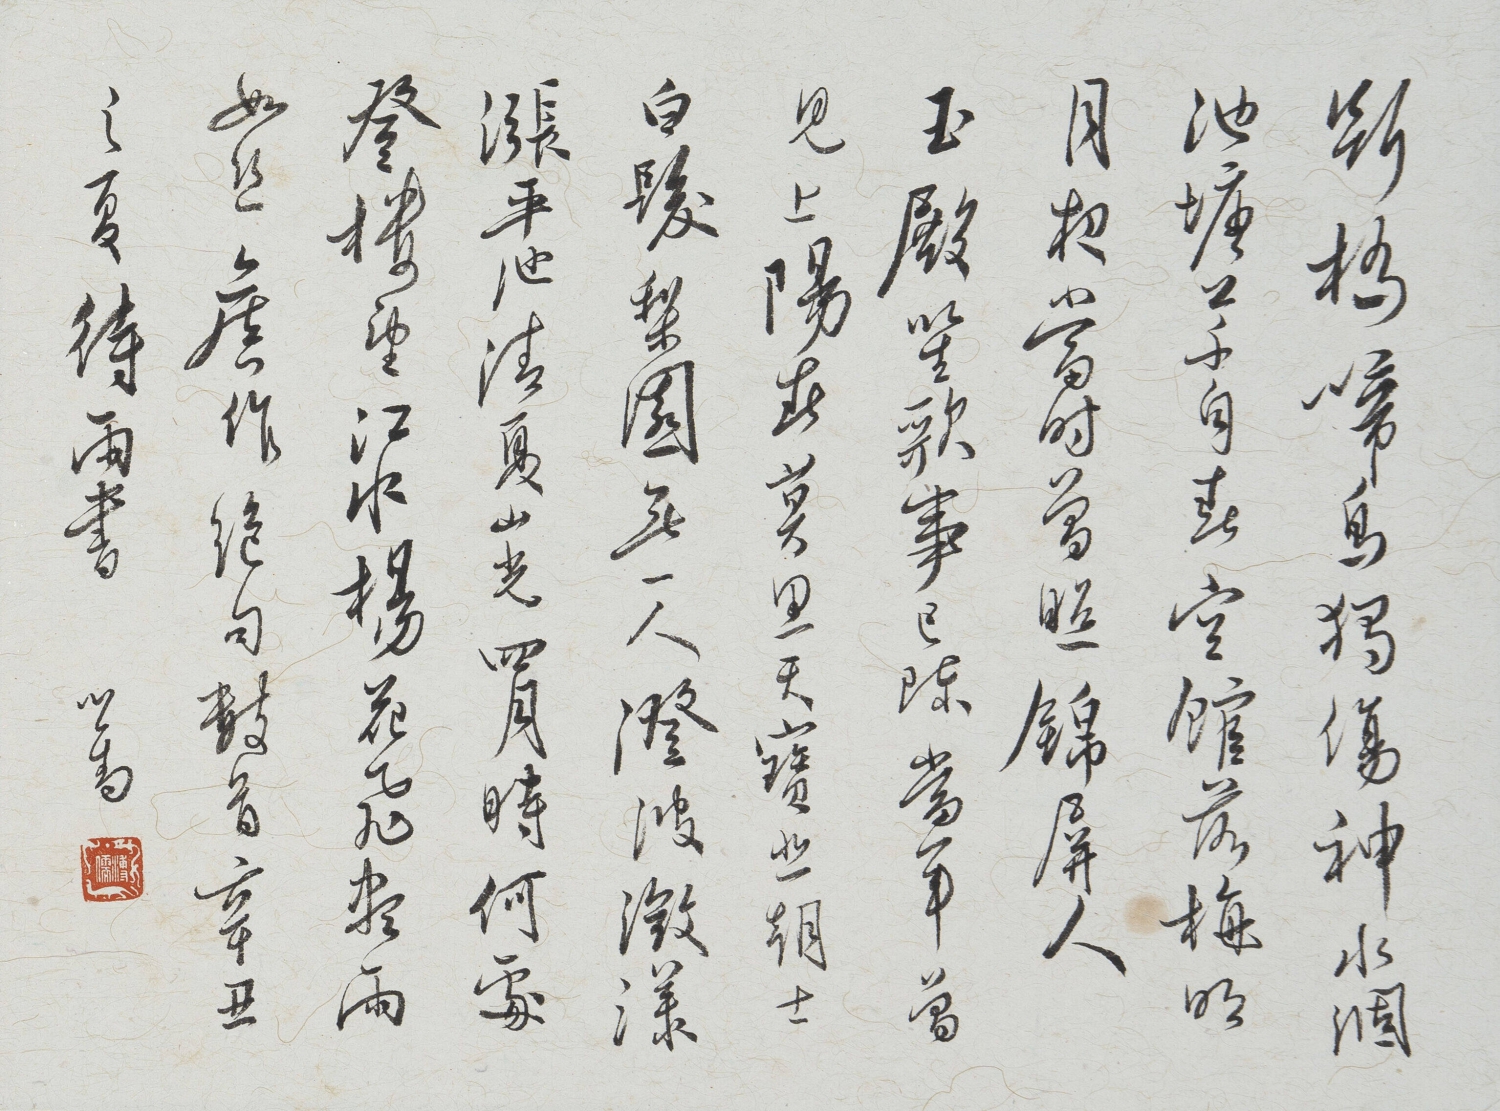 斷橋啼鳥獨傷神水涸
池塘草自春空館落梅明
月夜當時曾照錦屏人
玉殿笙歌事已陳當年曾
見上陽春莫思天寶此朝士
白髮梨園無一人澄波瀲漾
漲平池清夏山光四月時何處
登樓望江水楊花飛盡雨
如絲 舊作絕句數首辛丑
之夏待雨書 心畬
溥儒